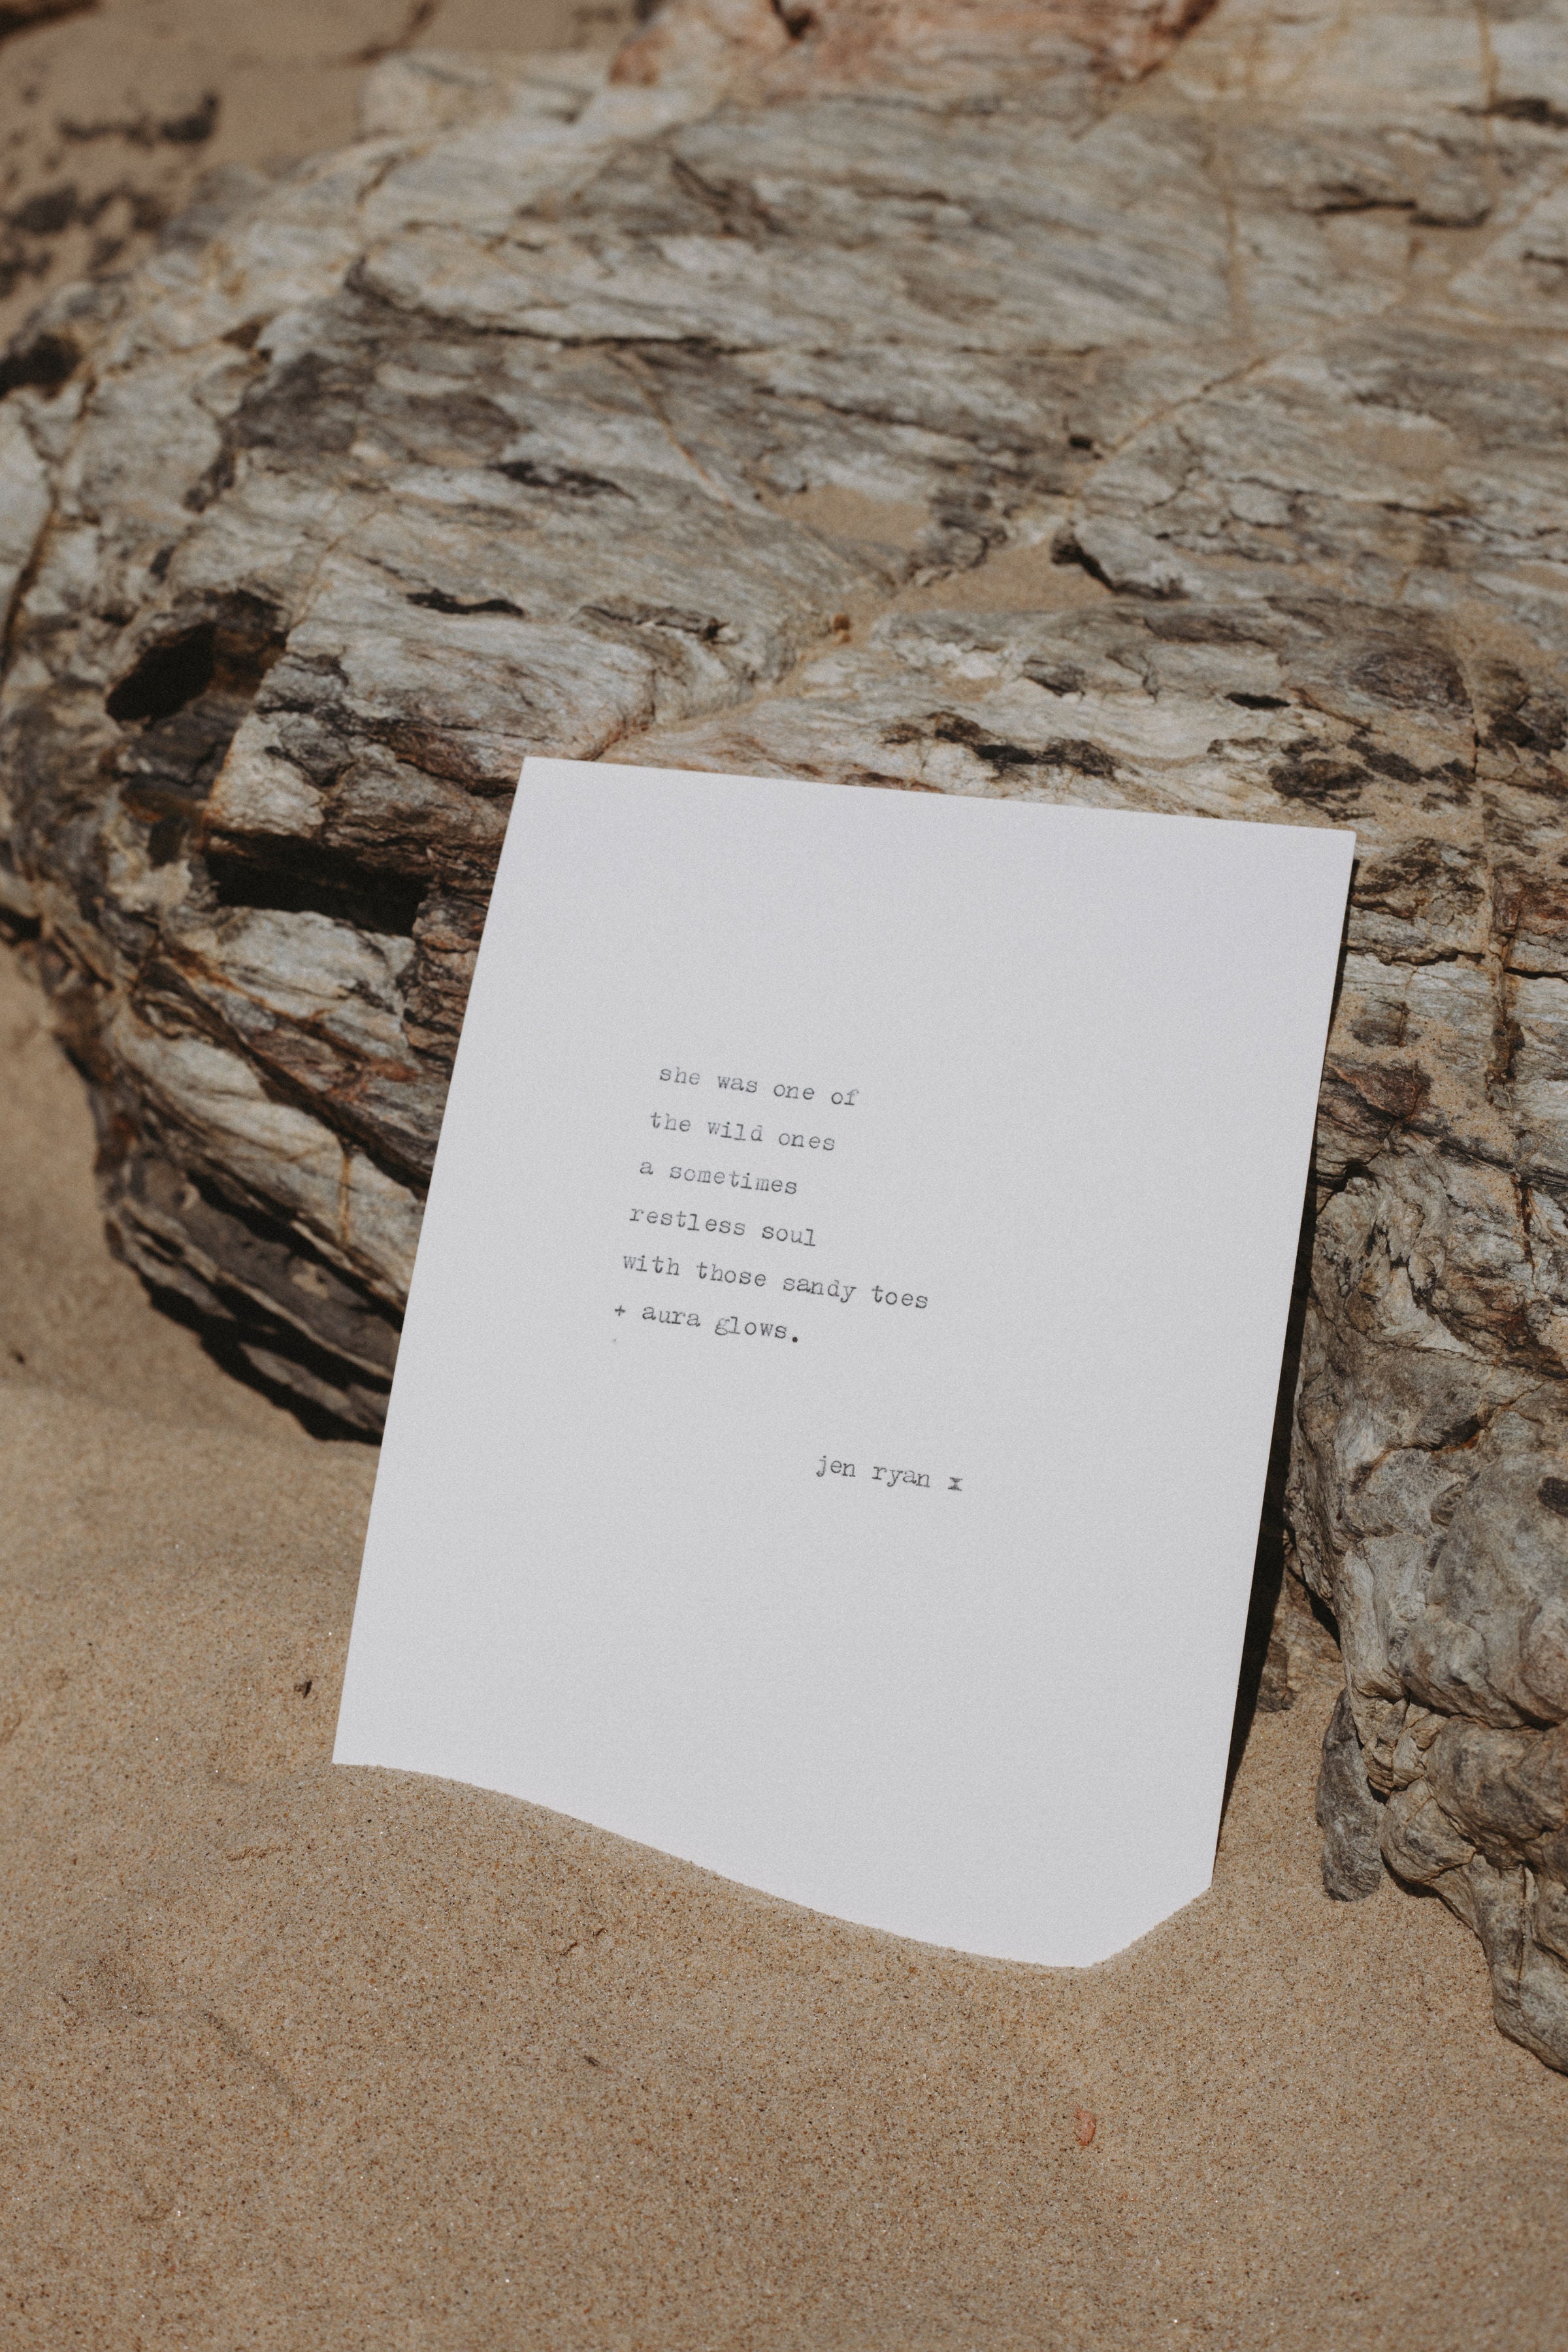 she was one of
the wild ones
a sometimes
restless soul
with those sandy toes
+ aura glows.
jen ryan x